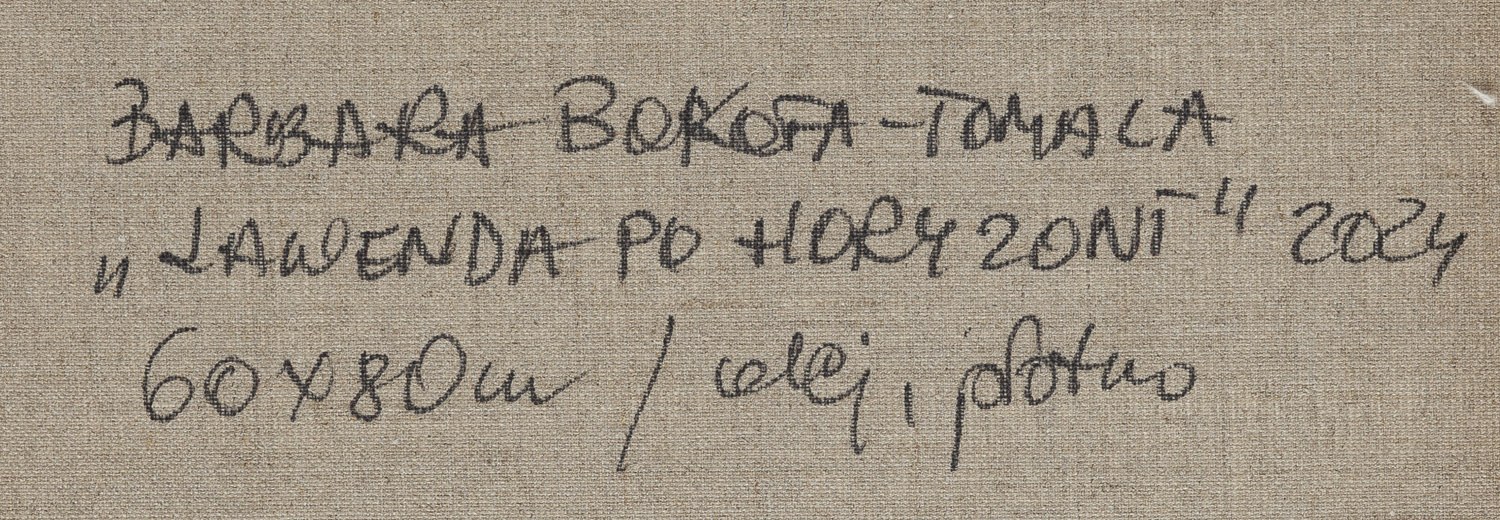 BARBARA BOKOTA-TOMALA
„LAWENDA PO HORYZONT" 2024
60x80cm / olej, płótno